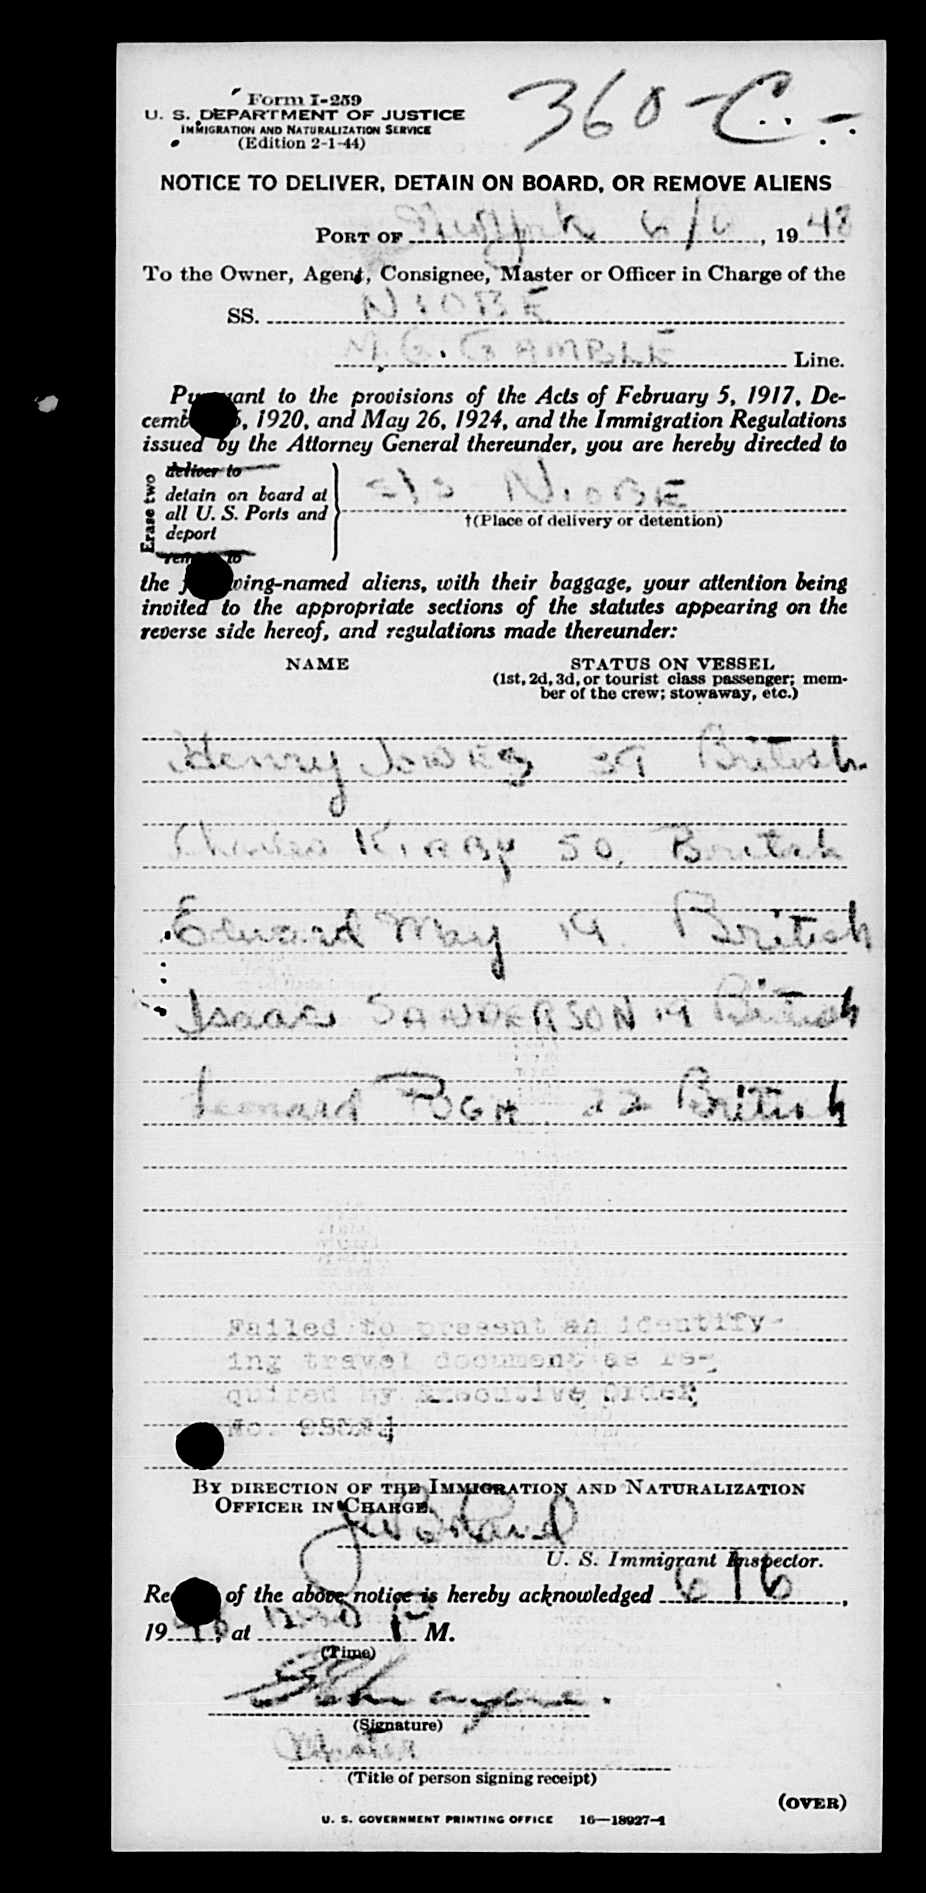 Form I-259
360-C
U. S. DEPARTMENT OF JUSTICE
IMMIGRATION AND NATURALIZATION SERVICE
(Edition 2-1-44)
NOTICE TO DELIVER, DETAIN ON BOARD, OR REMOVE ALIENS
PORT OF 6/6, 1948
To the Owner, Agent, Consignee, Master or Officer in Charge of the
SS. NIOBE
GAMBLE Line.
Pursuant to the provisions of the Acts of February 5, 1917, De-
cember 26, 1920, and May 26, 1924, and the Immigration Regulations
issued by the Attorney General thereunder, you are hereby directed to
Erase two
deliver to
detain on board at
all U. S. Ports and
deport
remove to
S/S NIOBE
†(Place of delivery or detention)
the following-named aliens, with their baggage, your attention being
invited to the appropriate sections of the statutes appearing on the
reverse side hereof, and regulations made thereunder:
NAME STATUS ON VESSEL
(1st, 2d, 3d, or tourist class passenger; mem-
ber of the crew; stowaway, etc.)
Henry British
Charles KIRBY 50 British
Edward May 19 British
Isaac SANDERSON 19 British
Leonard PUGH 22 British
Failed to present an identify-
ing travel document as re-
quired by Executive Order
No.
BY DIRECTION OF THE IMMIGRATION AND NATURALIZATION
OFFICER IN CHARGE.
U. S. Immigrant Inspector.
Receipt of the above notice is hereby acknowledged 6/6,
1948, at P M.
(Time)
(Signature)
Master
(Title of person signing receipt)
(OVER)
U. S. GOVERNMENT PRINTING OFFICE 16—18927-1